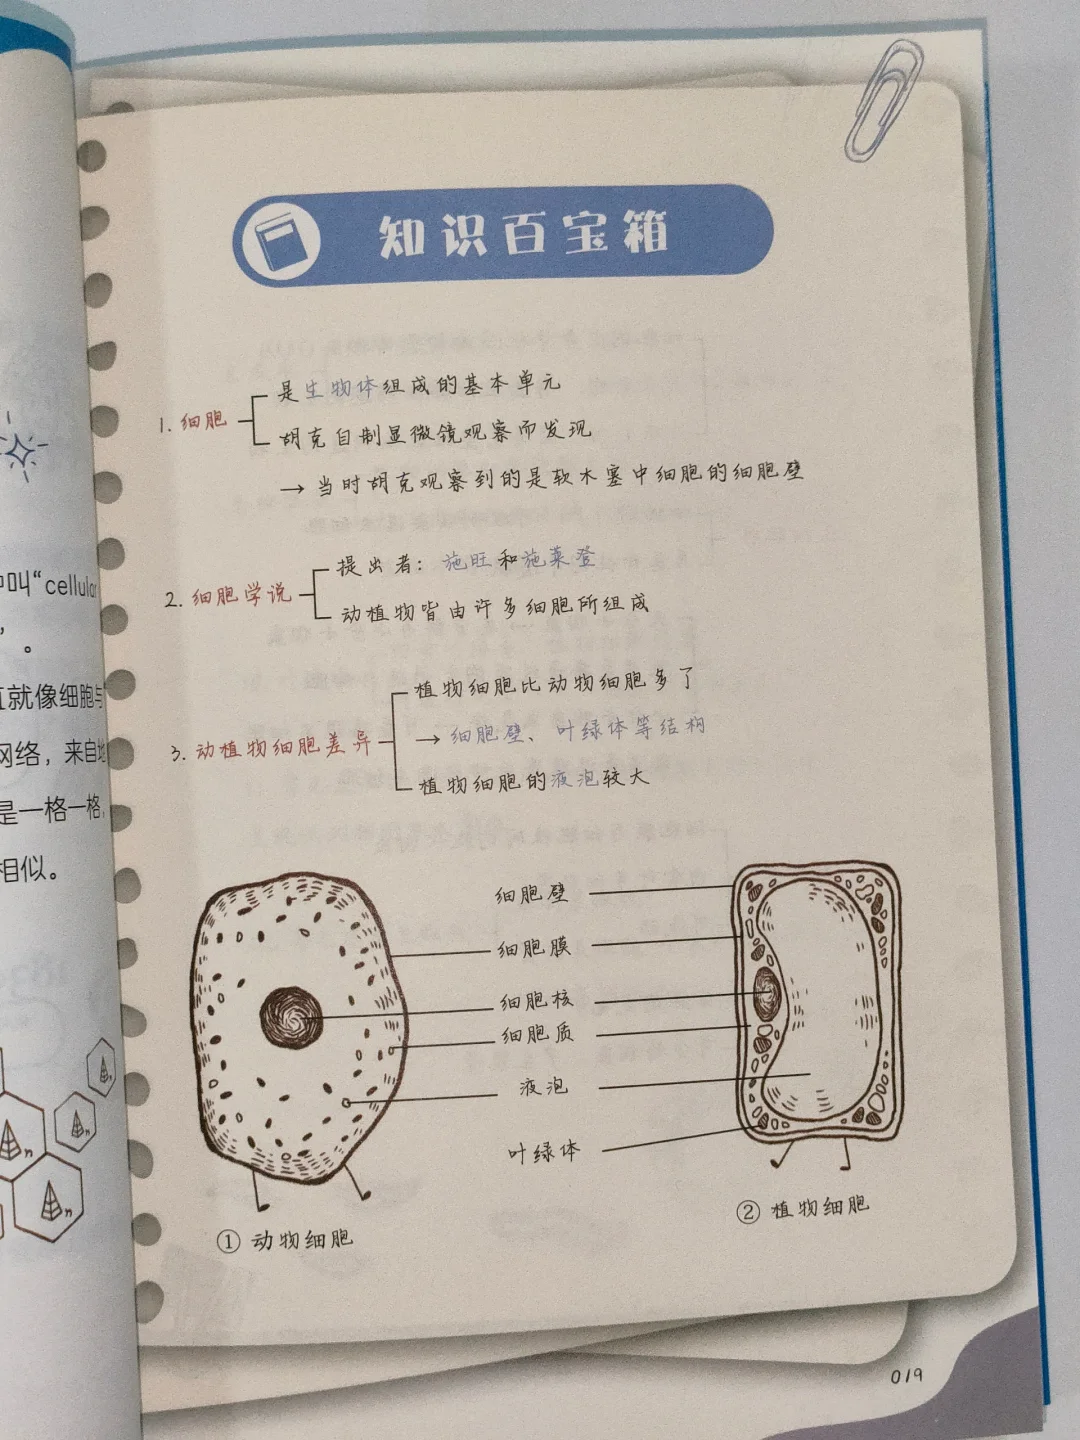 知识百宝箱
1. 细胞
是生物体组成的基本单元
胡克自制显微镜观察而发现
→ 当时胡克观察到的是软木塞中细胞的细胞壁
2. 细胞学说
提出者：施旺和施莱登
动植物皆由许多细胞所组成
3. 动植物细胞差异
植物细胞比动物细胞多了
→ 细胞壁、叶绿体等结构
植物细胞的液泡较大
细胞壁
细胞膜
细胞核
细胞质
液泡
叶绿体
① 动物细胞
② 植物细胞
019
叫“cellular
。
就像细胞与
网络，来自
是一格一格，
相似。
n
n
n
n